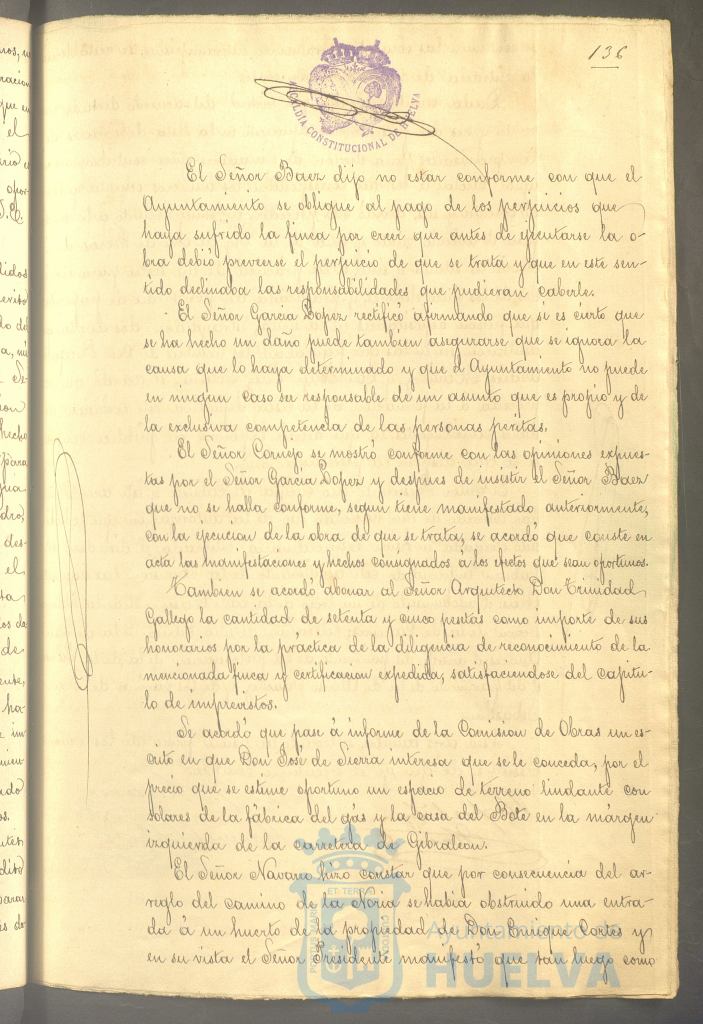 136
ALCALDIA CONSTITUCIONAL DE HUELVA
El Señor Baez dijo no estar conforme con que el
Ayuntamiento se obligue al pago de los perjuicios que
haya sufrido la finca por creer que antes de ejecutarse la o-
bra debió preverse el perjuicio de que se trata y que en este sen-
tido declinaba las responsabilidades que pudieran caberle.
El Señor Garcia Lopez rectificó afirmando que si es cierto que
se ha hecho un daño puede tambien asegurarse que se ignora la
causa que lo haya determinado y que el Ayuntamiento no puede
en ningun caso ser responsable de un asunto que es propio y de
la exclusiva competencia de las personas peritas.
El Señor Cornejo se mostró conforme con las opiniones expues-
tas por el Señor Garcia Lopez y despues de insistir el Señor Baez
que no se halla conforme, segun tiene manifestado anteriormente,
con la ejecucion de la obra de que se trata, se acordó que conste en
acta las manifestaciones y hechos consignados á los efectos que sean oportunos.
Tambien se acordó abonar al Señor Arquitecto Don Trinidad
Gallego la cantidad de setenta y cinco pesetas como importe de sus
honorarios por la práctica de la diligencia de reconocimiento de la
mencionada finca y certificacion expedida, satisfaciendose del capitu-
lo de imprevistos.
Se acordó que pase á informe de la Comision de Obras un es-
crito en que Don José de Sierra interesa que se le conceda, por el
precio que se estime oportuno un espacio de terreno lindante con
solares de la fábrica del gás y la casa del Bote en la márgen
izquierda de la carretera de Gibraleon.
El Señor Navarro hizo constar que por consecuencia del ar-
reglo del camino de la Noria se habia obstruido una entra-
da á un huerto de la propiedad de Don Enrique Cortés y
en su vista el Señor Presidente manifestó que tan luego como
Ayuntamiento de
HUELVA
PORTUS MARIS ET TERRAE CUSTODIA